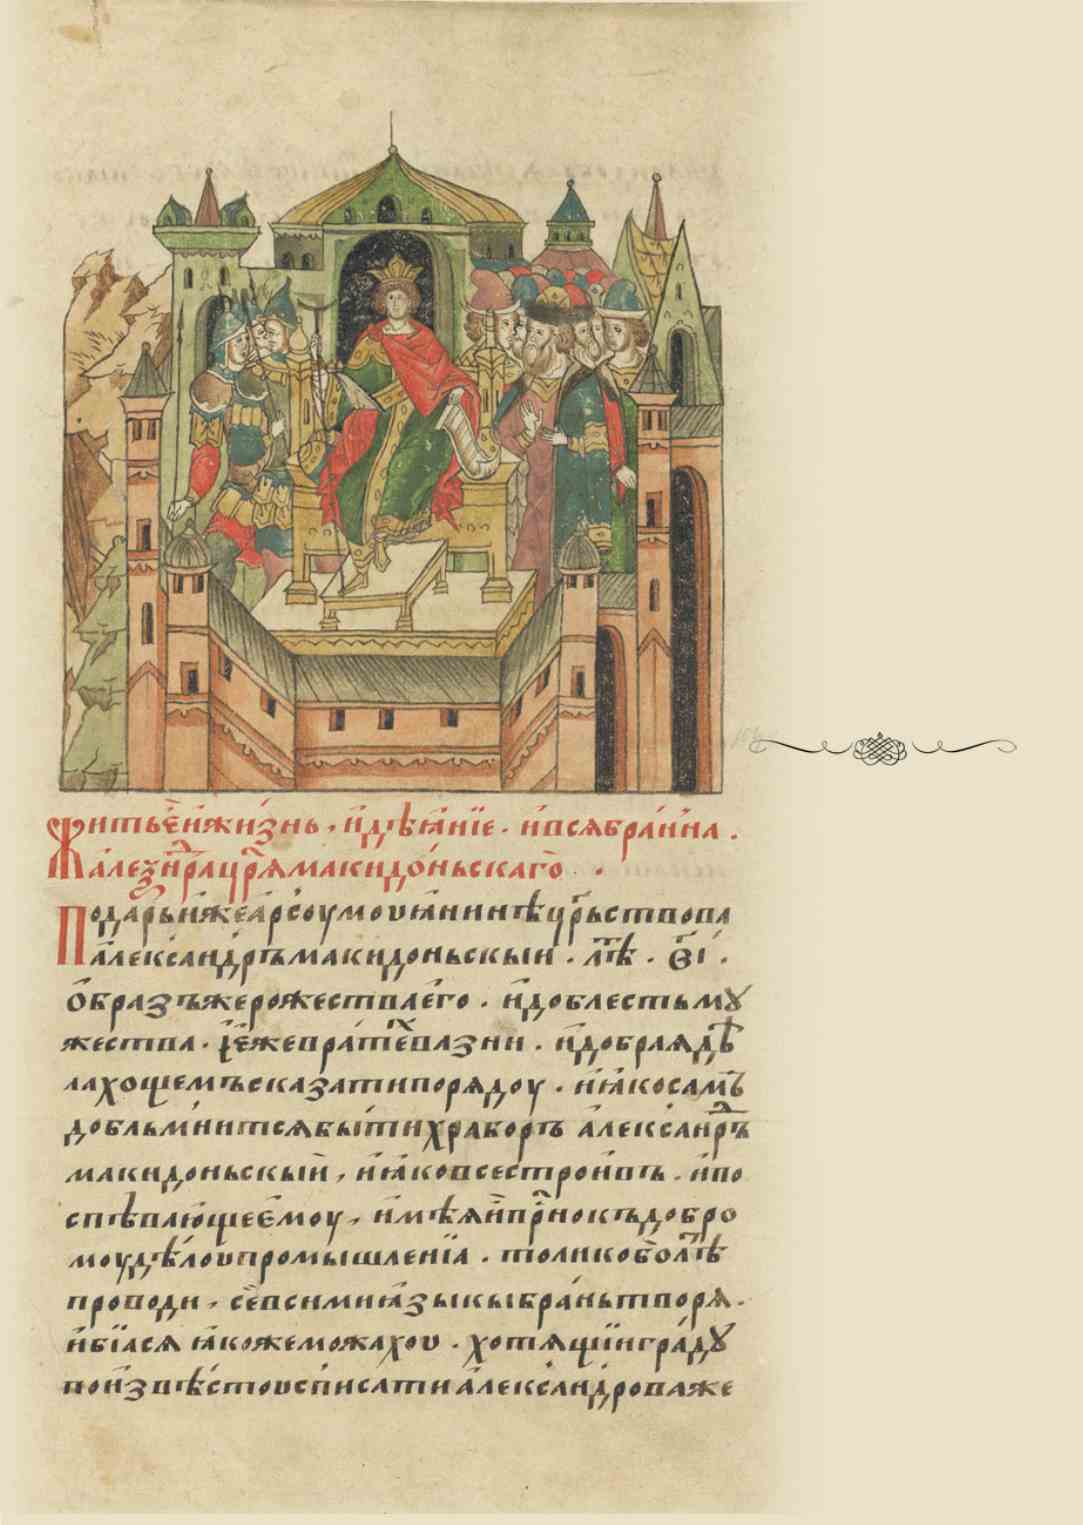 Житьѐ и҆ жи́знь, и҆ дѣꙗ҆́нїе. и҆ всѧ бра́ни на
а҆леѯн҆дра црⷭ҇ѧ макидо́ньскагѡ.
По да́рьи же а҆рсоумои҆ꙗни нѣ црⷭ҇ьствова
а҆леѯандръ макидоньскыи. лѣтⷮ. в҃і.
ѻ҆бразъ же рожества е҆го. и҆ доблесть мꙋ
жества. е҆́же в ратехⷯ вазни. и҆ добраѧ дѣ
ла хощемъ сказати по рѧдоу. и҆ ꙗ҆ко самъ
добль мни́тсѧ бы́ти храборъ а҆леѯандръ
макидоньскый, и҆ ꙗ҆ко все строи҆въ. и҆ по
спѣвающее е҆моу, и҆мѣѧ и҆ прⷭ҇но къ добро
моу дѣлоу промышленїа. толико бо лѣтⷮ
проводи, сѐ всими ꙗ҆зыкы бра́нь творѧ.
и҆ бїасѧ ꙗ҆коже можахоу. хотѧщїи гра́дꙋ
по и҆звѣстоу списати а҆леѯандрова же